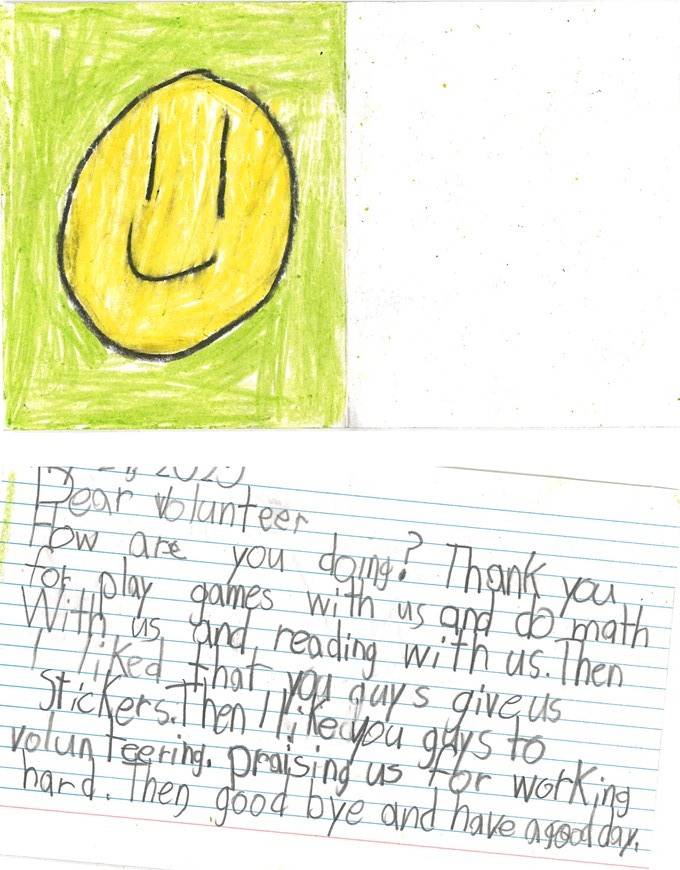 Dear volunteer
How are you doing? Thank you
for play games with us and do math
With us and reading with us. Then
I liked that you guys give us
Stickers. Then I liked you guys to
volunteering. praising us for working
hard. Then good bye and have a good day.